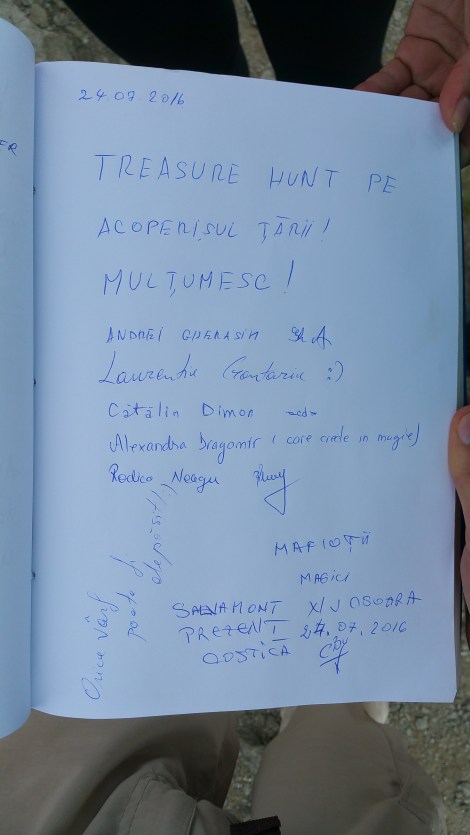 24.07.2016
TREASURE HUNT PE
ACOPERIȘUL ȚĂRII!
MULȚUMESC!
ANDREI GHERASIM
Laurențiu :)
Cătălin Dimon
Alexandra Dragomir (care crede in magie)
Rodica Neagu
Orice vârf
poate fi
depășit!
MAFIOȚII
MAGICI
SALVAMONT
PREZENT 24.07.2016
COSTICA
ER